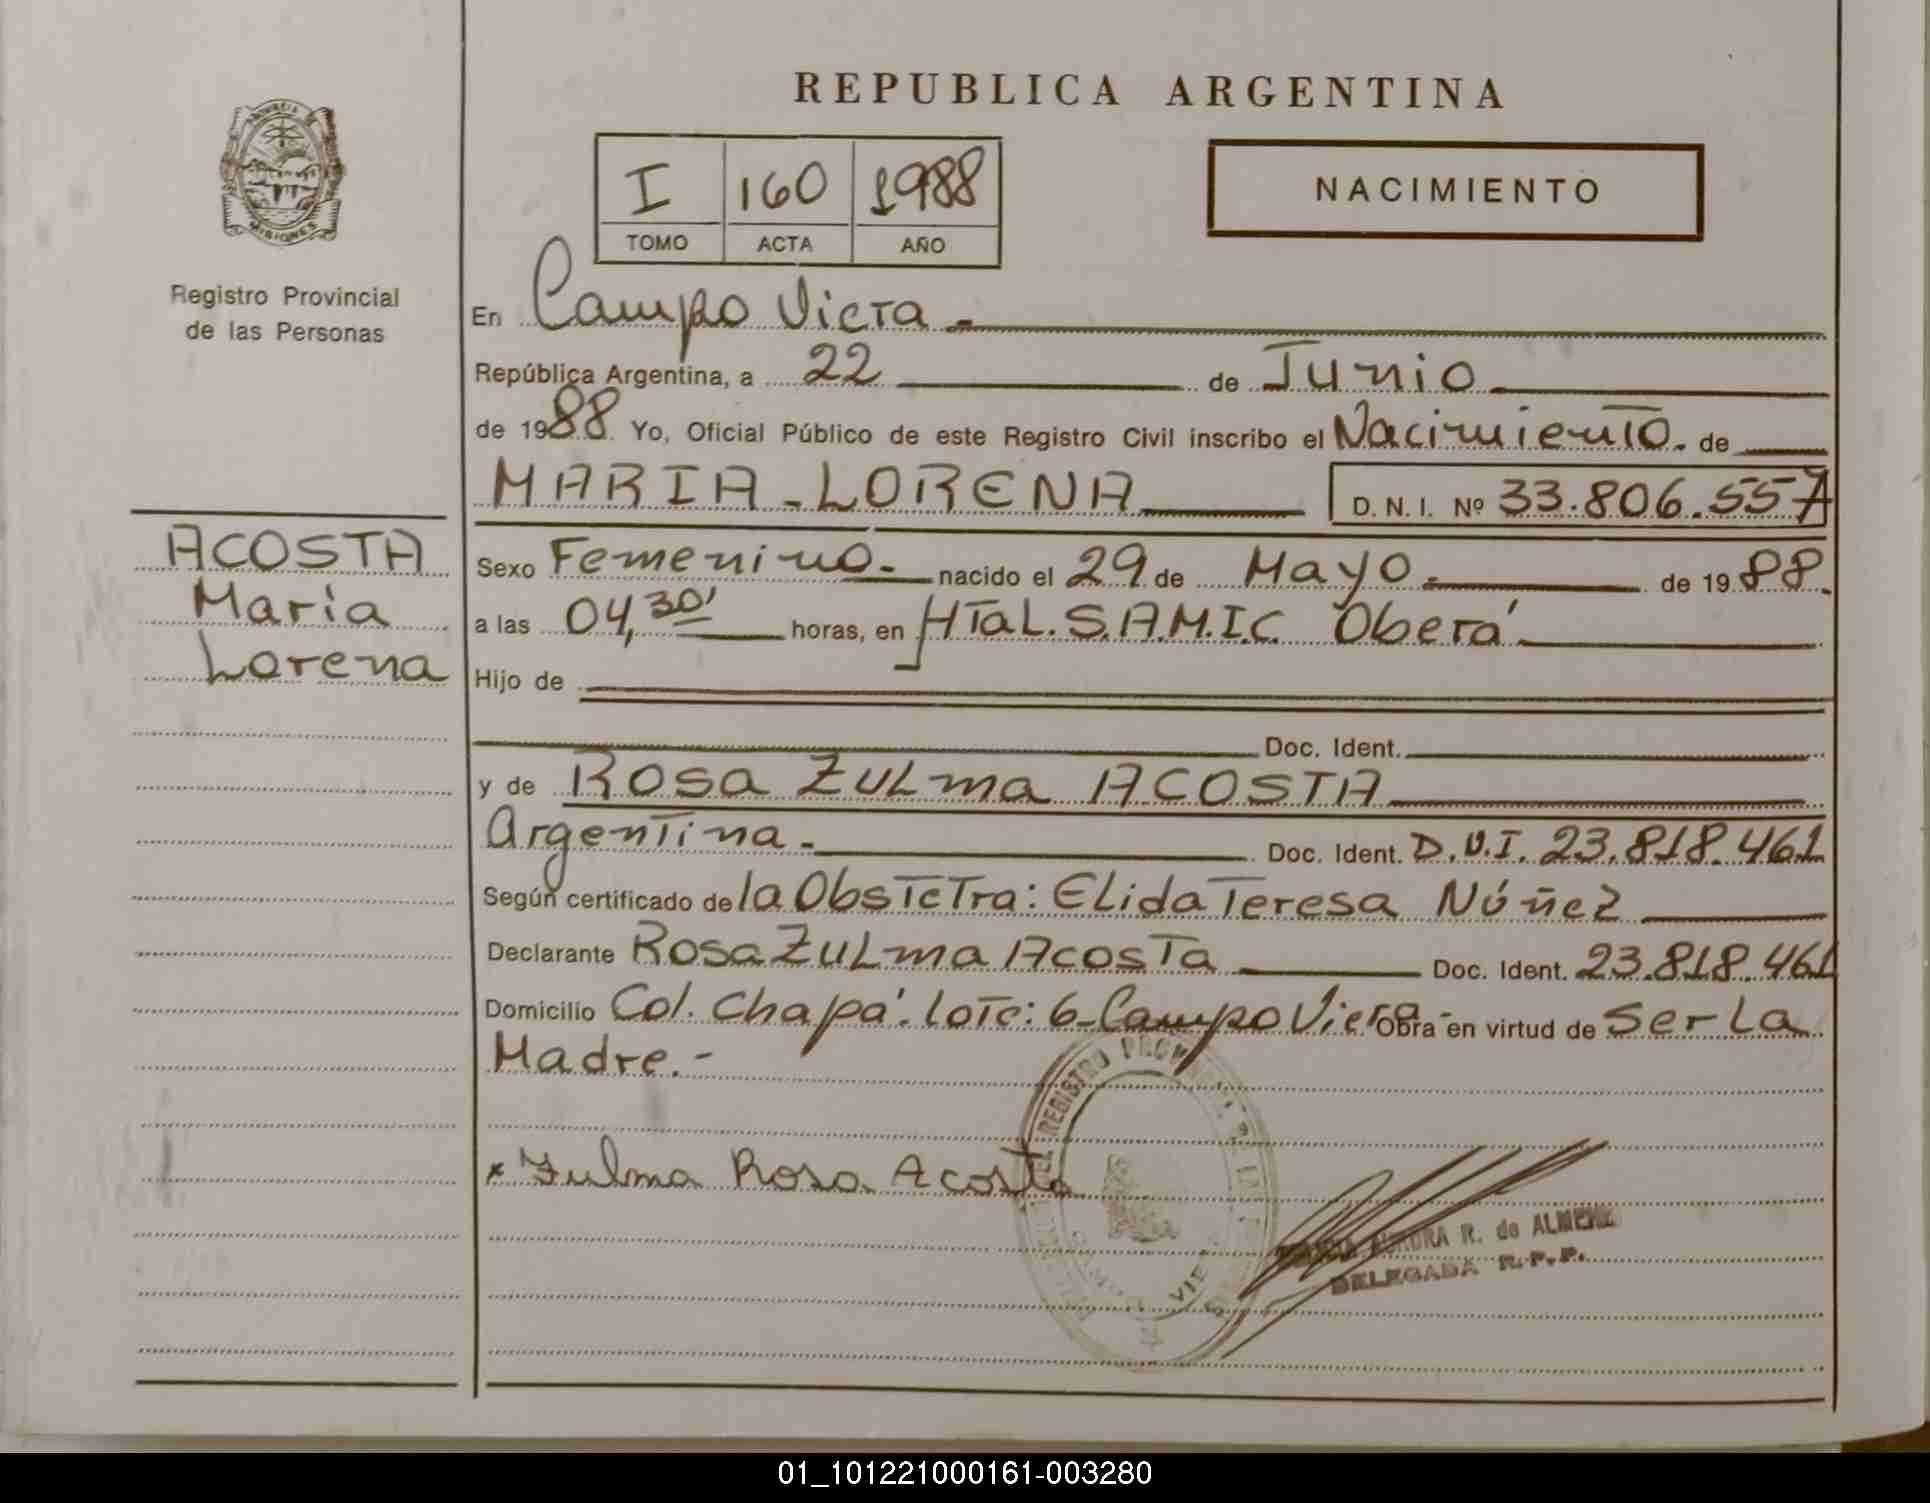 REPUBLICA ARGENTINA
I 160 1988
TOMO ACTA AÑO
NACIMIENTO
PROVINCIA DE
MISIONES
Registro Provincial
de las Personas
ACOSTA
María
Lorena
En Campo Viera.-
República Argentina, a 22 de Junio
de 1988. Yo, Oficial Público de este Registro Civil inscribo el Nacimiento. de
MARIA-LORENA D. N. I. Nº 33.806.557
Sexo Femenino.- nacido el 29 de Mayo. de 1988.
a las 04,30' horas, en HTal. S.A.M.I.C. Oberá
Hijo de
Doc. Ident.
y de Rosa Zulma ACOSTA
Argentina.- Doc. Ident. D.N.I. 23.818.461
Según certificado de la Obstetra: Elida Teresa Núñez
Declarante Rosa Zulma Acosta Doc. Ident. 23.818.461
Domicilio Col. Chapá. Lote: 6-Campo Viera- Obra en virtud de Ser La
Madre.-
x Zulma Rosa Acosta
DEL REGISTRO PROVINCIAL DE LAS
CAMPO VIERA
AURORA R. de ALMEHE
DELEGADA R.P.P.
01_101221000161-003280